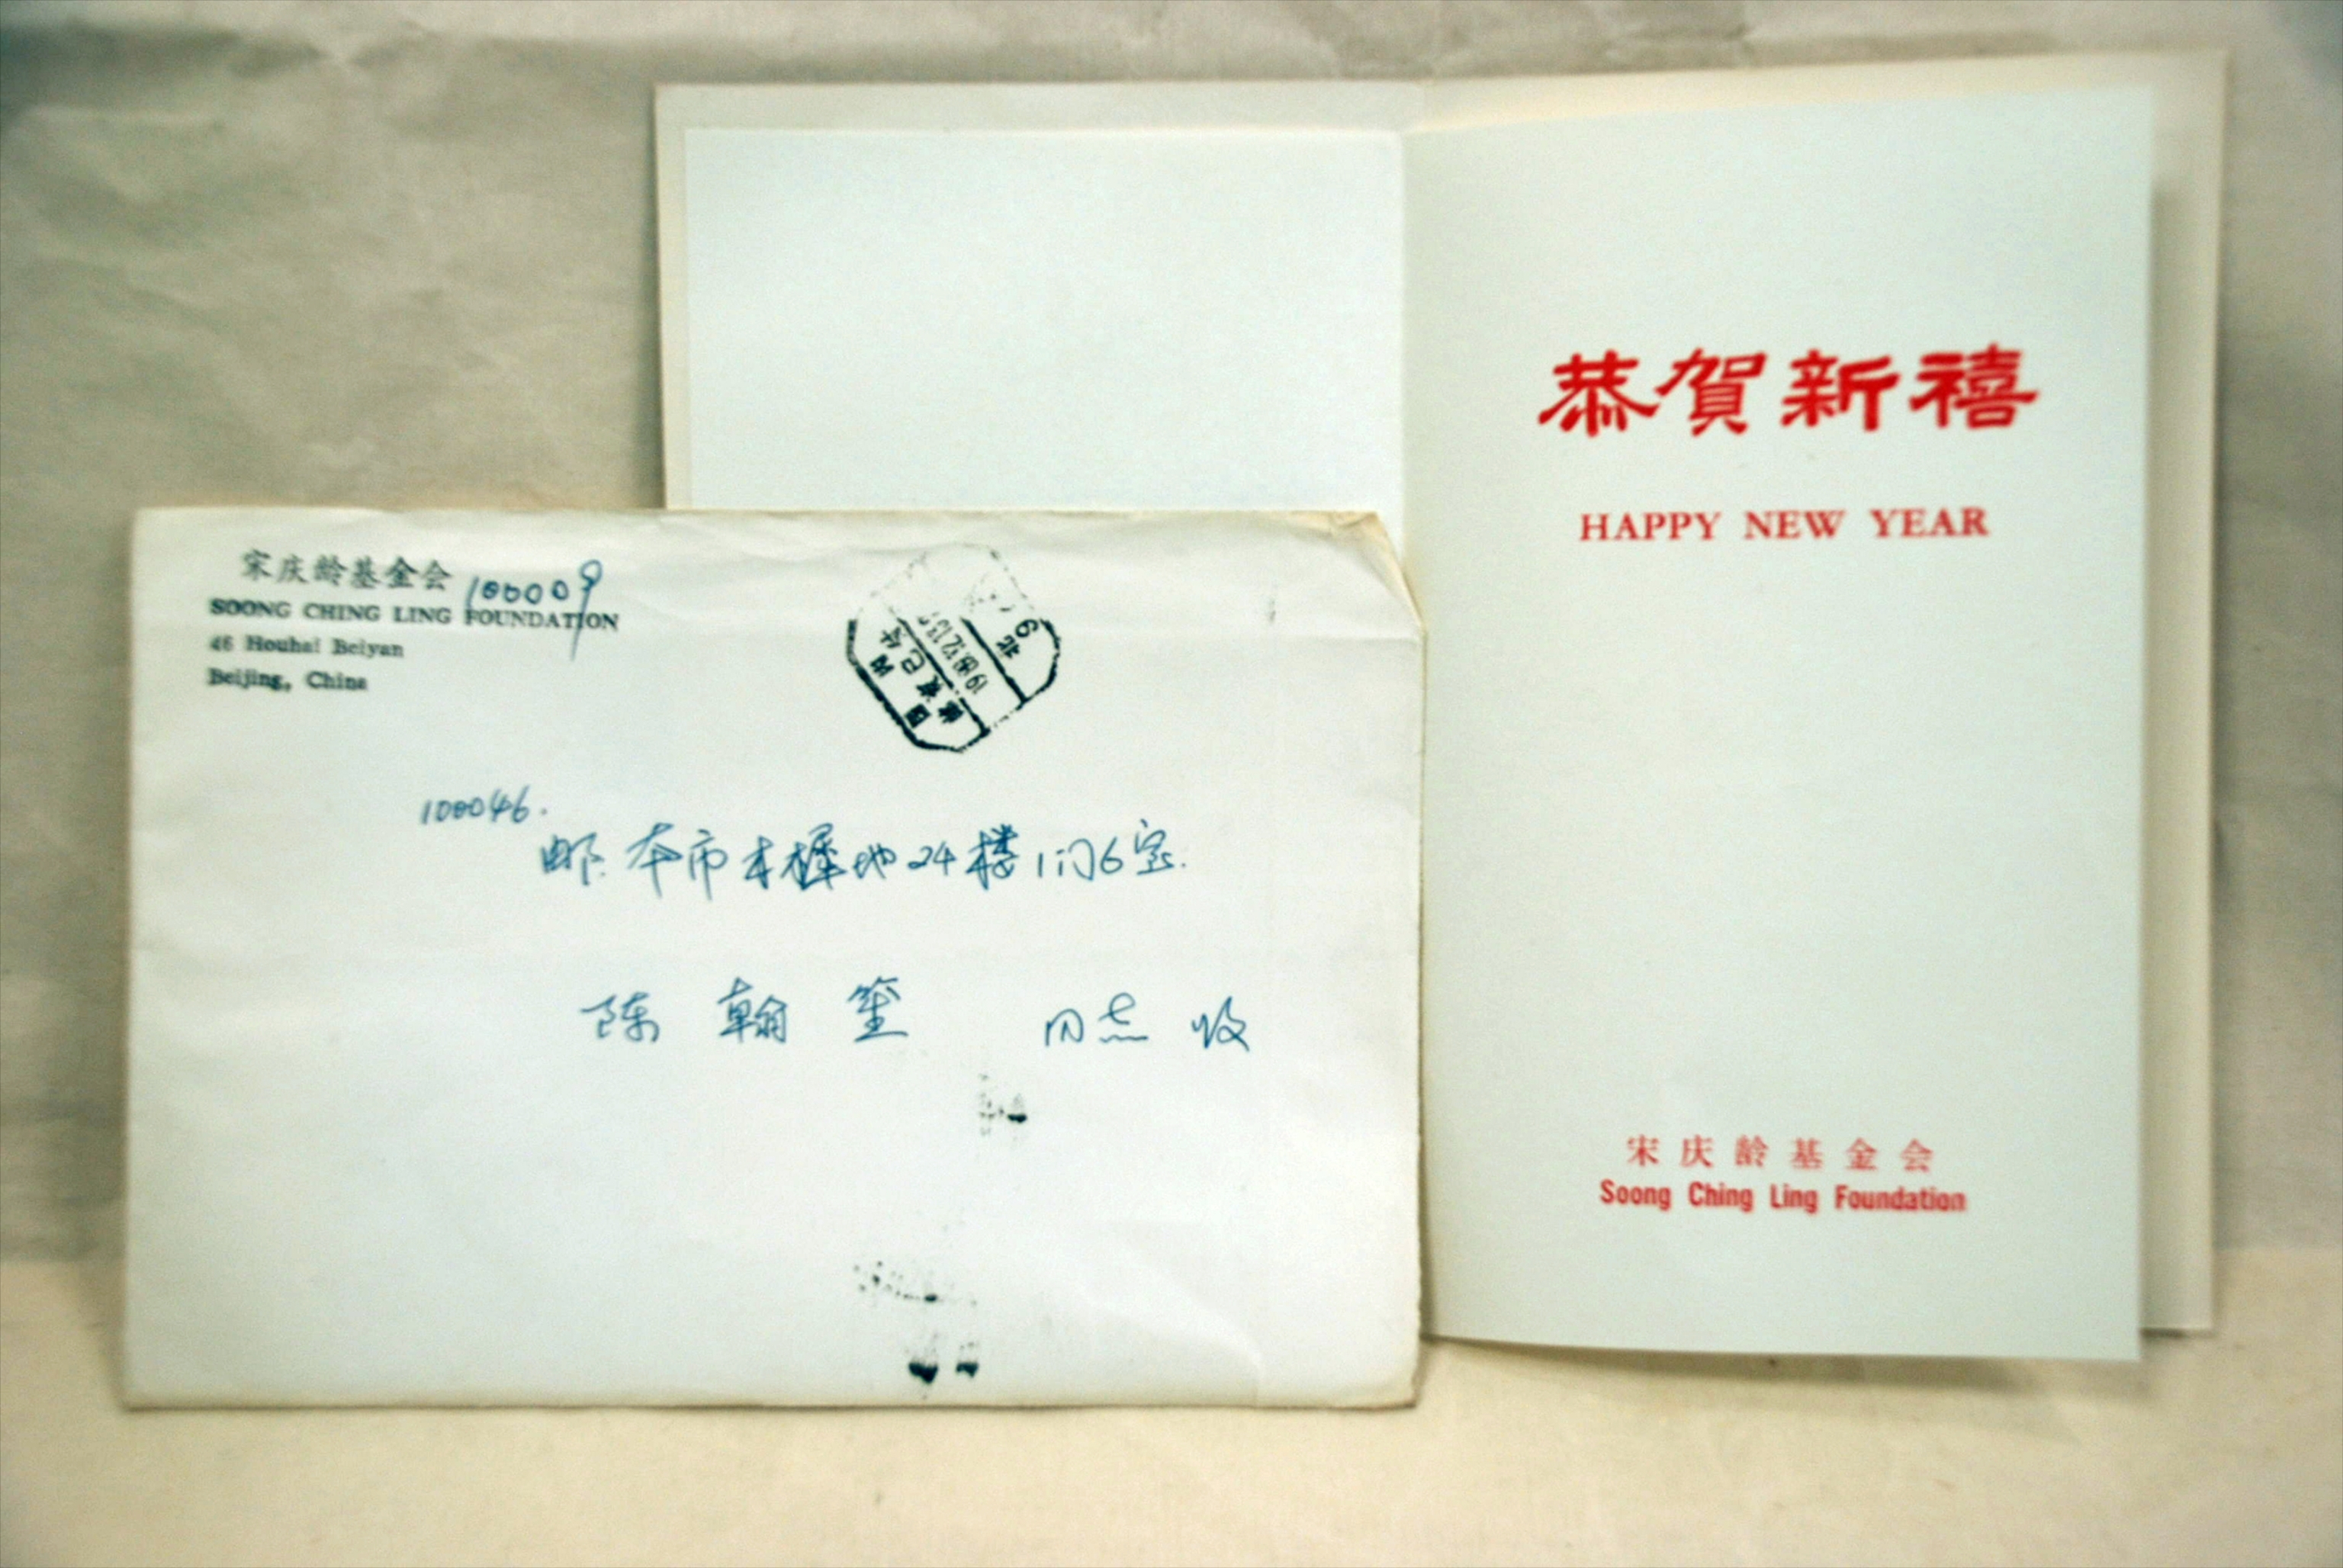 宋庆龄基金会
100009
SOONG CHING LING FOUNDATION
46 Houhai Beiyan
Beijing, China
国内
邮资已付
北
100046.
邮. 本市木樨地24楼1门6室.
陈翰笙 同志 收
恭賀新禧
HAPPY NEW YEAR
宋庆龄基金会
Soong Ching Ling Foundation